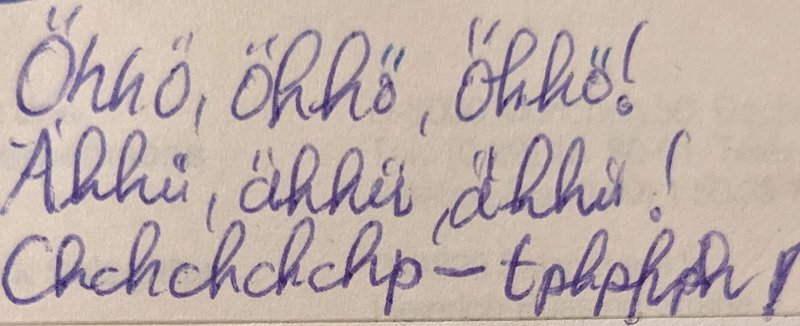 Öhhö, öhhö, öhhö!
Ähhü, ähhü, ähhü!
Chchchchchp – tphphph!